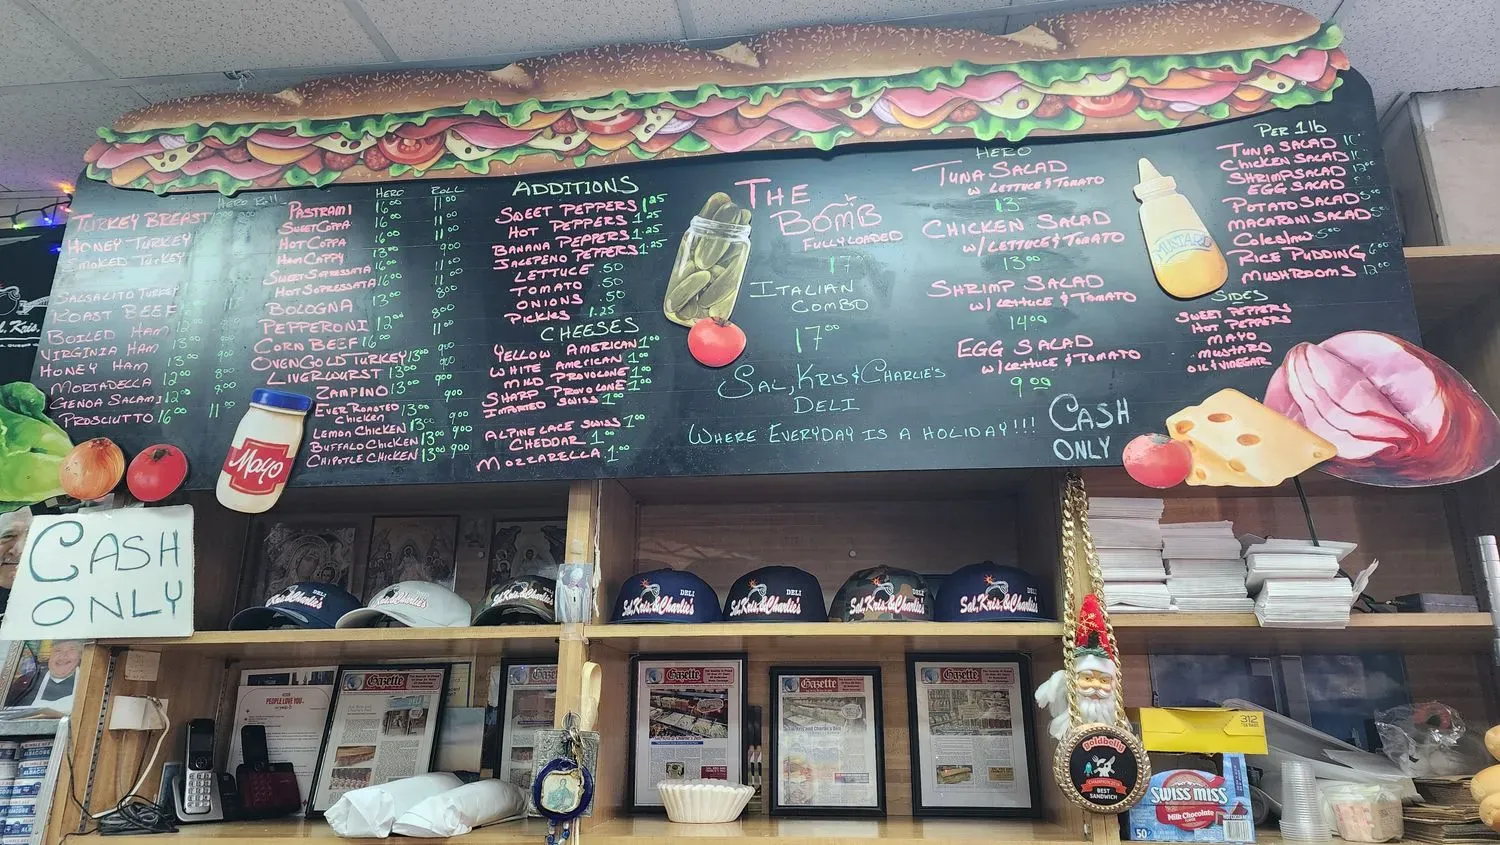 HERO ROLL
TURKEY BREAST
HONEY TURKEY
SMOKED TURKEY
SALSALITO TURKEY
ROAST BEEF
BOILED HAM
VIRGINIA HAM
HONEY HAM
MORTADELLA 12.00
GENOA SALAMI 12.00
PROSCIUTTO 16.00 11.00
HERO ROLL
PASTRAMI 16.00 11.00
SWEET COPPA 16.00 11.00
HOT COPPA 16.00 11.00
HAM CAPPY 13.00 9.00
SWEET SOPRESSATA 16.00 11.00
HOT SOPRESSATA 16.00 11.00
BOLOGNA 13.00 8.00
PEPPERONI 12.00 8.00
CORN BEEF 16.00 11.00
OVENGOLD TURKEY 13.00 9.00
LIVERWURST 13.00 9.00
ZAMPINO 13.00 9.00
EVER ROASTED CHICKEN 13.00 9.00
LEMON CHICKEN 13.00 9.00
BUFFALO CHICKEN 13.00 9.00
CHIPOTLE CHICKEN 13.00 9.00
ADDITIONS
SWEET PEPPERS 1.25
HOT PEPPERS 1.25
BANANA PEPPERS 1.25
JALEPENO PEPPERS 1.25
LETTUCE .50
TOMATO .50
ONIONS .50
PICKLES 1.25
CHEESES
YELLOW AMERICAN 1.00
WHITE AMERICAN 1.00
MILD PROVOLONE 1.00
SHARP PROVOLONE 1.00
IMPORTED SWISS 1.00
ALPINE LACE SWISS 1.00
CHEDDAR 1.00
MOZZARELLA 1.00
THE
BOMB
FULLY LOADED
17.00
ITALIAN
COMBO
17.00
SAL, KRIS & CHARLIE'S
DELI
WHERE EVERYDAY IS A HOLIDAY!!!
HERO
TUNA SALAD
W/ LETTUCE & TOMATO
13
CHICKEN SALAD
W/ LETTUCE & TOMATO
13.00
SHRIMP SALAD
W/ LETTUCE & TOMATO
14.00
EGG SALAD
W/ LETTUCE & TOMATO
9.00
CASH
ONLY
MUSTARD
PER 1 lb
TUNA SALAD
CHICKEN SALAD
SHRIMP SALAD 12.00
EGG SALAD
POTATO SALAD
MACARONI SALAD
COLESLAW 5.00
RICE PUDDING 6.00
MUSHROOMS 12.00
SIDES
SWEET PEPPERS
HOT PEPPERS
MAYO
MUSTARD
OIL & VINEGAR
Mayo
CASH
ONLY
DELI
Sal, Kris, & Charlie's
DELI
Sal, Kris, & Charlie's
DELI
Sal, Kris, & Charlie's
DELI
Sal, Kris, & Charlie's
PEOPLE LOVE YOU
Gazette
Gazette
Gazette
Gazette
goldbelly
CHAMPION
BEST
SANDWICH
312
SWISS MISS
Milk Chocolate
50